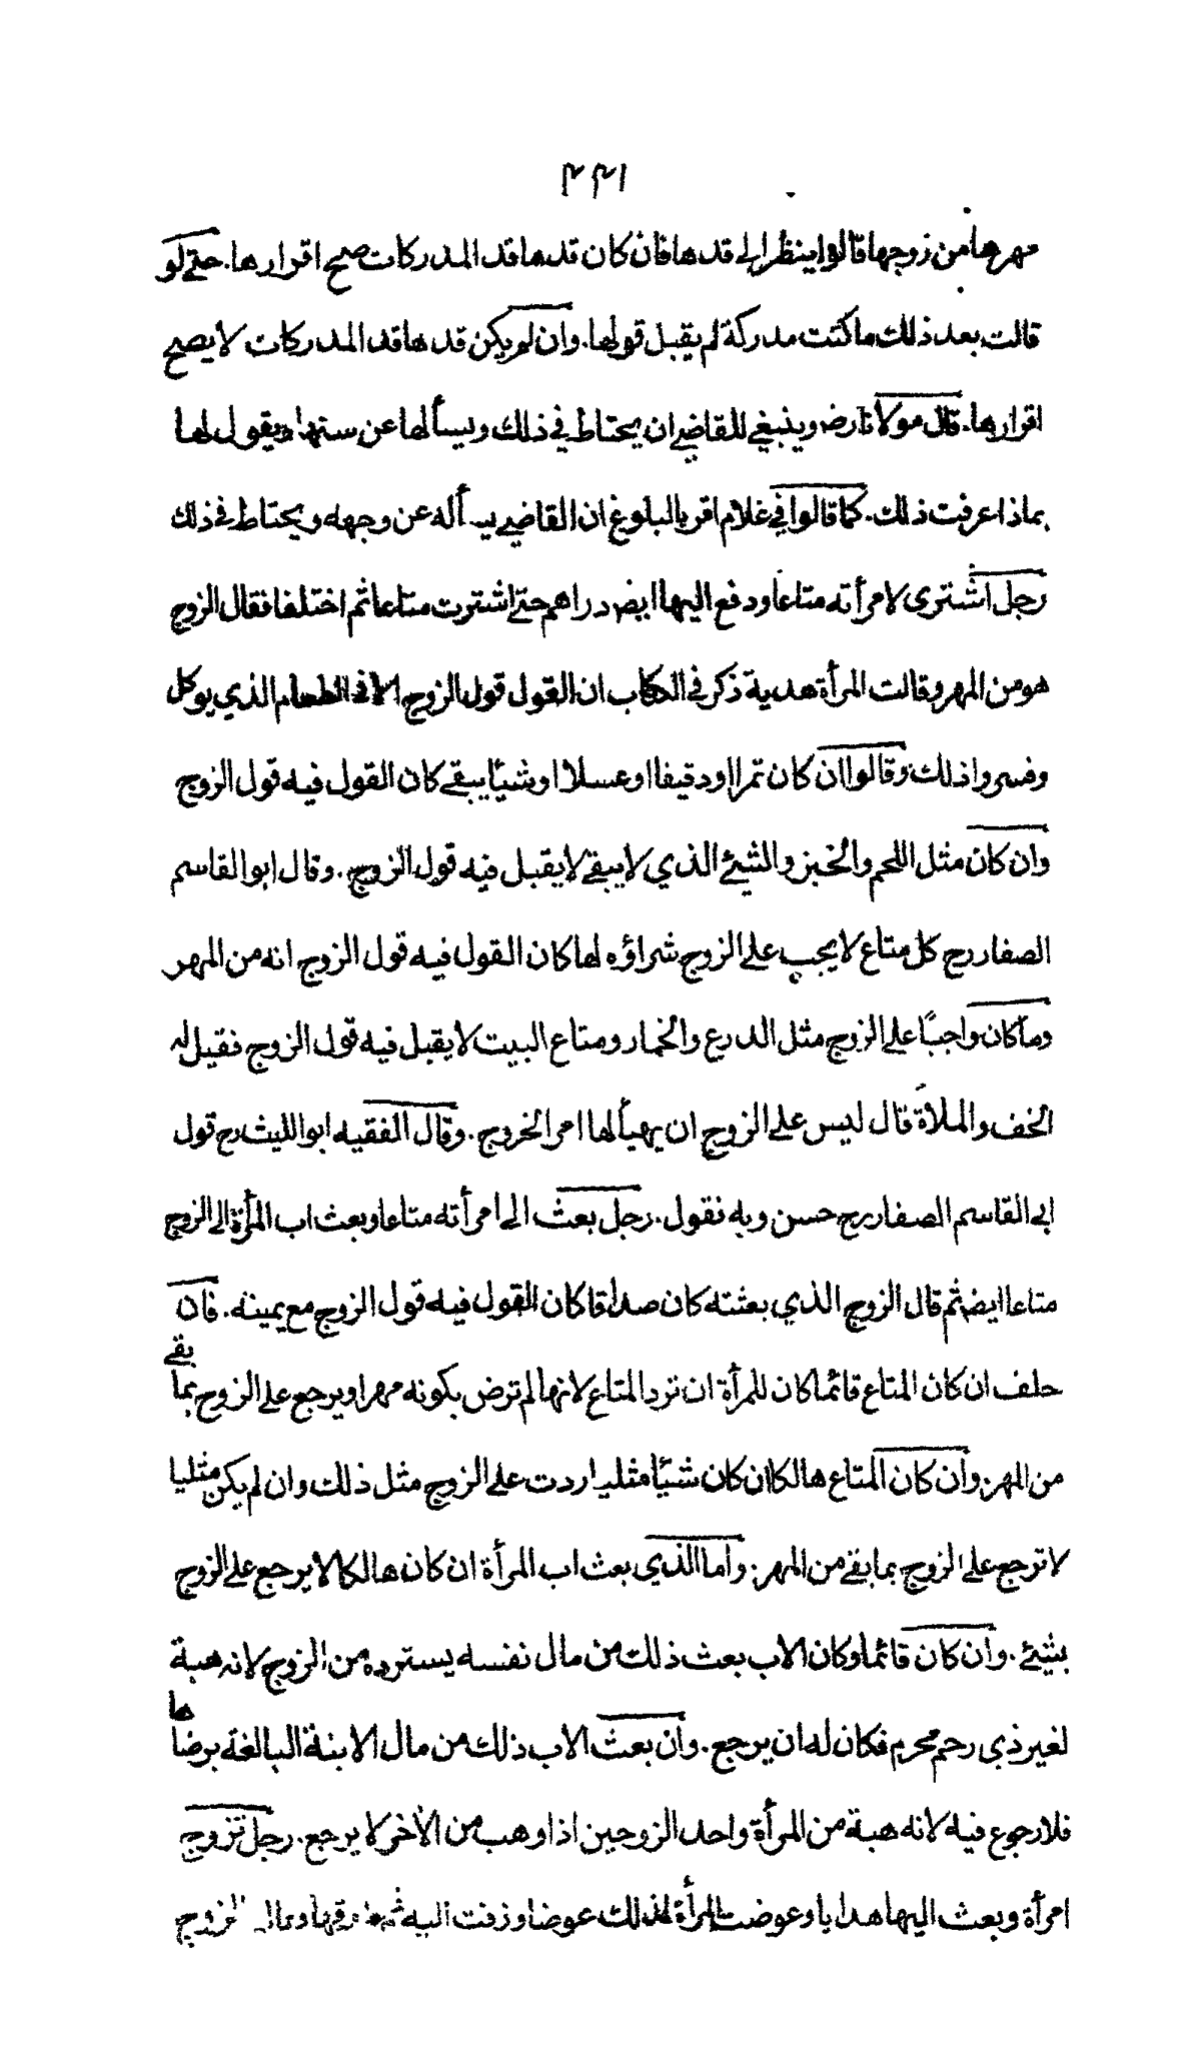 ٤٤١
مهرها من زوجها قالوا ينظر الى قدها فان كان قدها قد المدركات صح اقرارها. حتى لو
قالت بعد ذلك ما كنت مدركة لم يقبل قولها. وان لم يكن قدها قد المدركات لا يصح
اقرارها. قال مولانا رضه وينبغي للقاضي ان يحتاط في ذلك ويسألها عن سنها ويقول لها
بماذا عرفت ذلك. كما قالوا في غلام اقر بالبلوغ ان القاضي يسأله عن وجهه ويحتاط في ذلك
رجل اشترى لامرأته متاعا ودفع اليها ايضه دراهم حتى اشترت متاعا ثم اختلفا فقال الزوج
هو من المهر وقالت المرأة هدية ذكر في الكتاب ان القول قول الزوج الا في الطعام الذي يوكل
وفسروا ذلك وقالوا ان كان تمرا او دقيقا او عسلا او شيئا يبقى كان القول فيه قول الزوج
وان كان مثل اللحم والخبز والشيئ الذي لا يبقى لا يقبل فيه قول الزوج. وقال ابو القاسم
الصفار رح كل متاع لا يجب على الزوج شراؤه لها كان القول فيه قول الزوج انه من المهر
وما كان واجبًا على الزوج مثل الدرع والخمار ومتاع البيت لا يقبل فيه قول الزوج فقيل له
الخف والملاة قال ليس على الزوج ان يهيأ لها امر الخروج. وقال الفقيه ابو الليث رح قول
ابى القاسم الصفار رح حسن وبه نقول. رجل بعث الى امرأته متاعا وبعث اب المرأة الى الزوج
متاعا ايضه ثم قال الزوج الذي بعثته كان صداقا كان القول فيه قول الزوج مع يمينه. فان
حلف ان كان المتاع قائما كان للمرأة ان ترد المتاع لانها لم ترض بكونه مهرا ويرجع على الزوج بما بقى
من المهر. وان كان المتاع هالكا ان كان شيئا مثليا ردت على الزوج مثل ذلك وان لم يكن مثليا
لا ترجع على الزوج بما بقى من المهر. واما الذي بعث اب المرأة ان كان هالكا لا يرجع على الزوج
بشيئ. وان كان قائما وكان الاب بعث ذلك من مال نفسه يسترده من الزوج لانه هبة
لغير ذي رحم محرم فكان له ان يرجع. وان بعث الاب ذلك من مال الابنة البالغة برضاها
فلا رجوع فيه لانه هبة من المرأة واحد الزوجين اذا وهب من الاخر لا يرجع. رجل تزوج
امرأة وبعث اليها هدايا وعوضت المرأة لذلك عوضا وزفت اليه ثم فارقها وقال الزوج